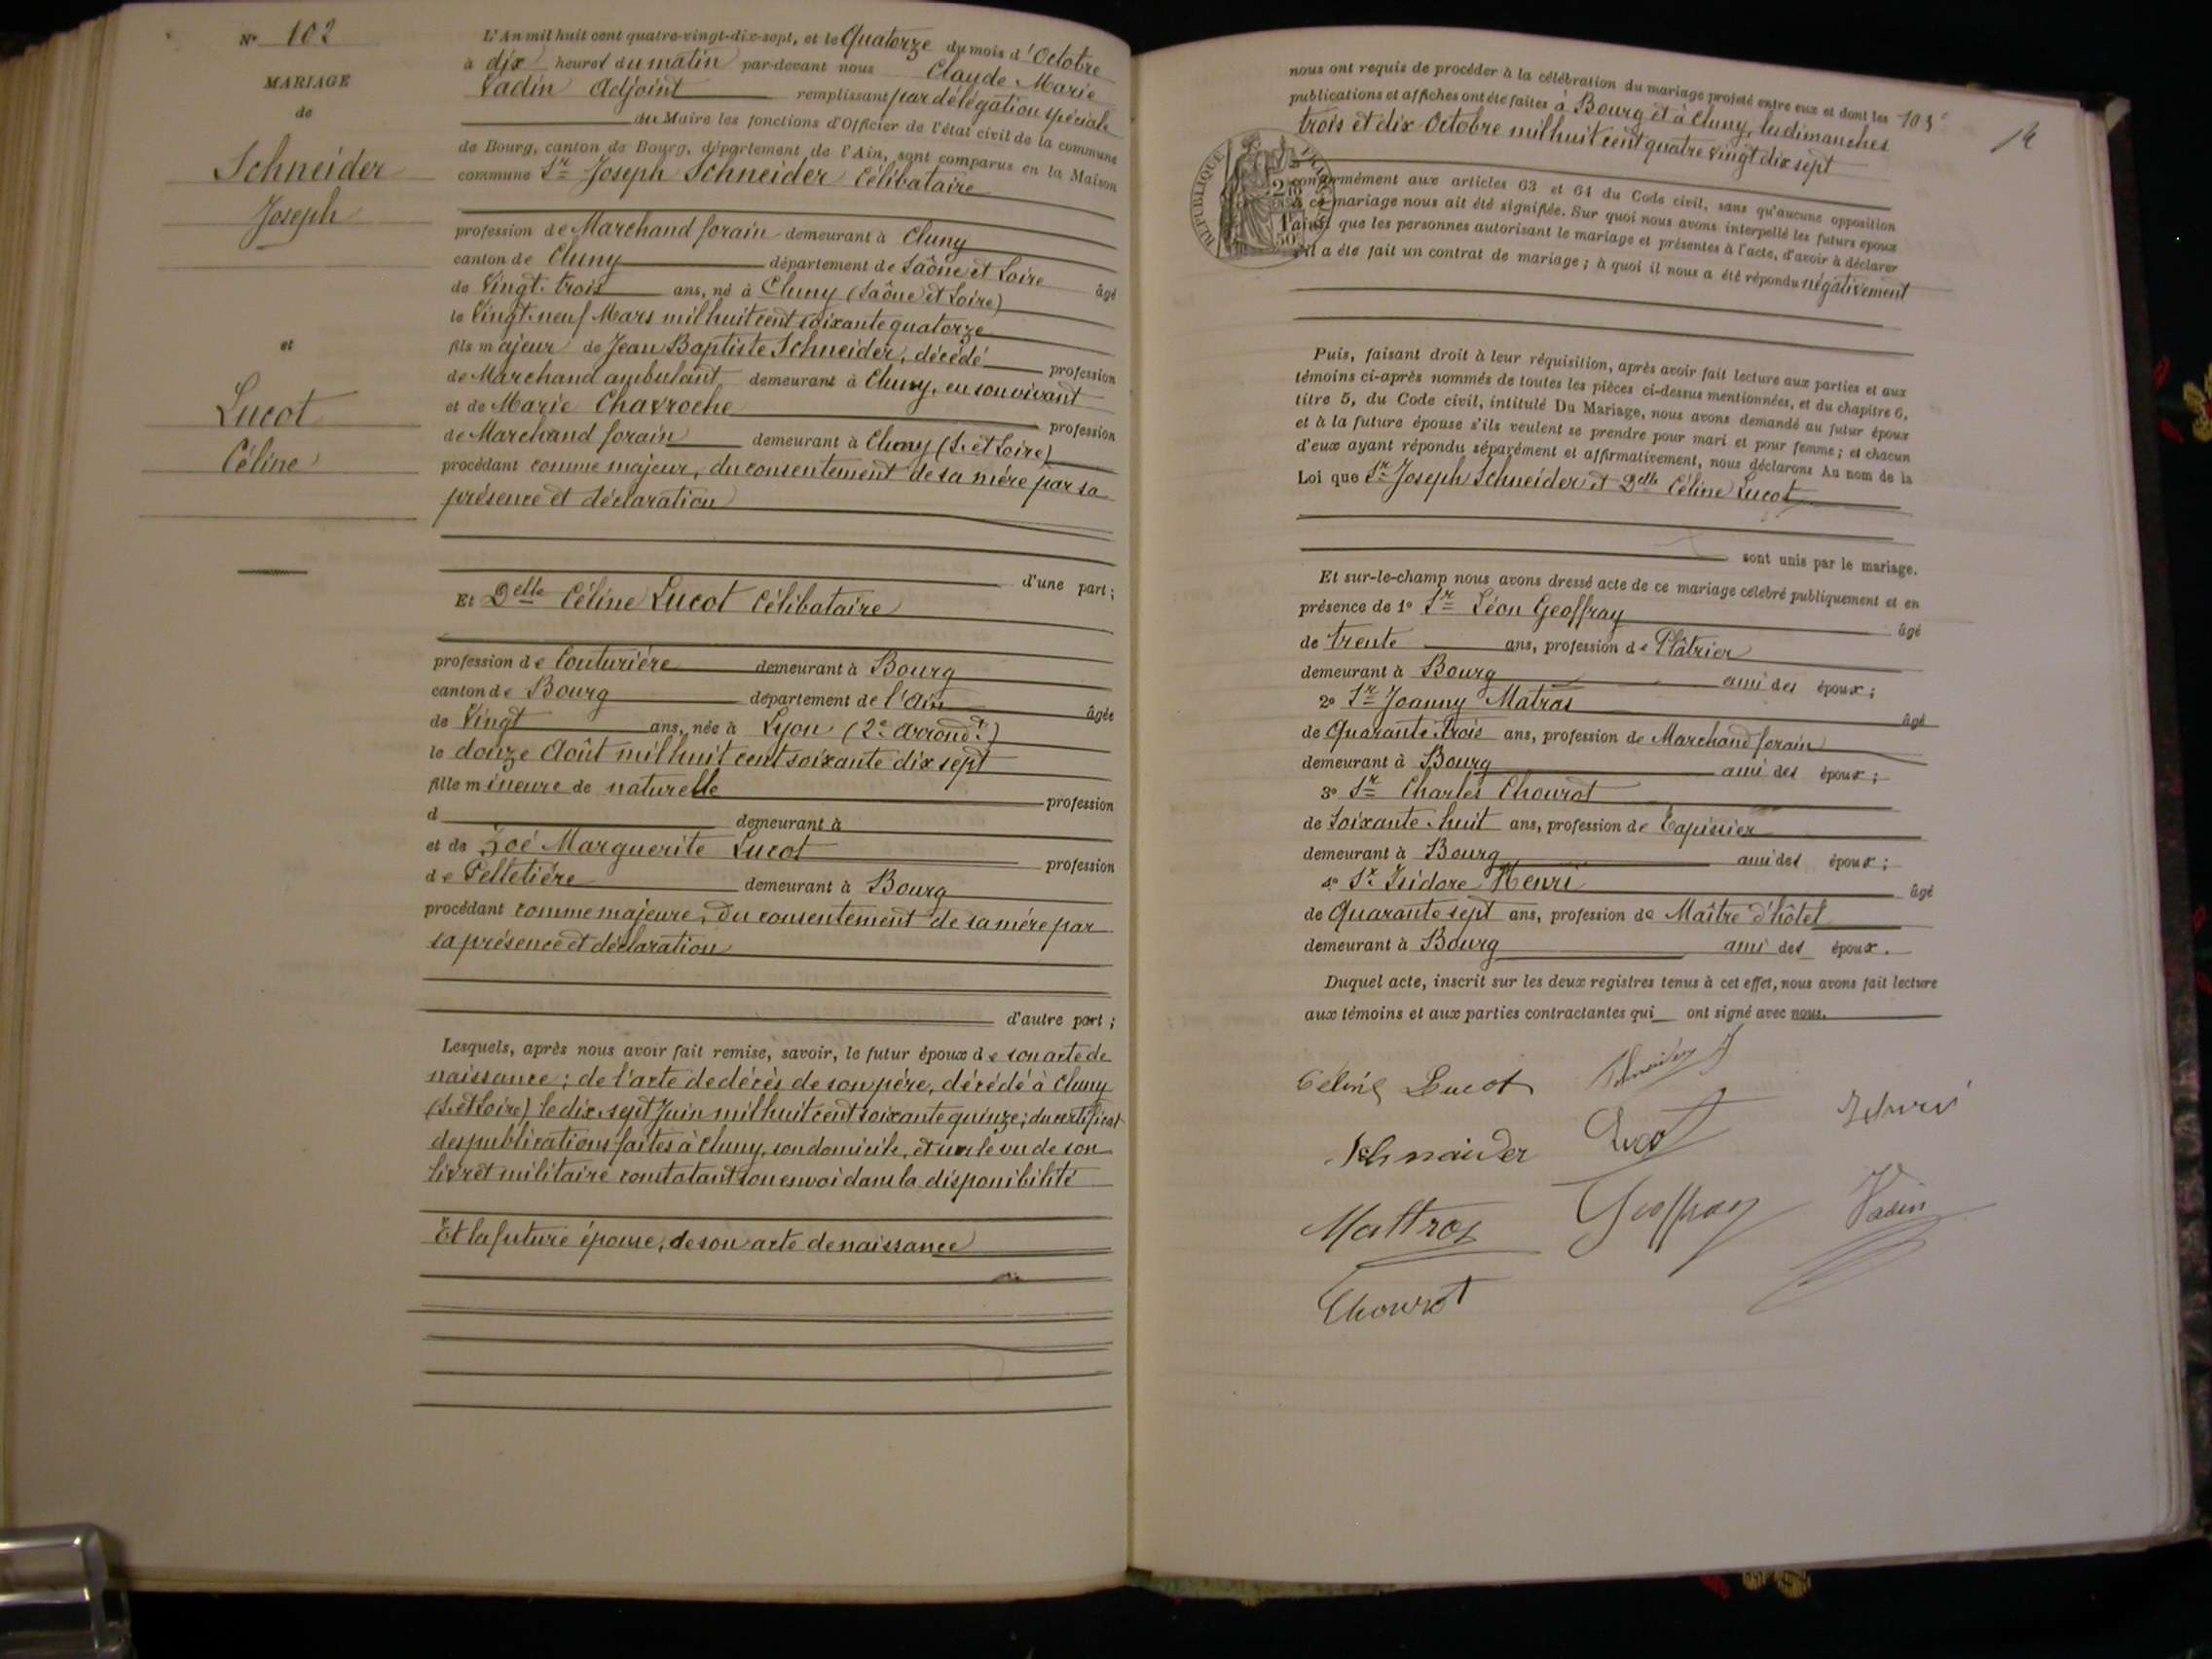 N° 102
MARIAGE
de
Schneider
Joseph
et
Lucot
Céline
L'An mil huit cent quatre-vingt-dix-sept, et le Quatorze du mois d'Octobre
à dix heures du matin par-devant nous Claude Marie
Vadin Adjoint remplissant par délégation spéciale
du Maire les fonctions d'Officier de l'état civil de la commune
de Bourg, canton de Bourg, département de l'Ain, sont comparus en la Maison
commune Sr Joseph Schneider Célibataire
profession de Marchand forain demeurant à Cluny
canton de Cluny département de Saône et Loire
âgé
de Vingt-trois ans, né à Cluny (Saône et Loire)
le Vingt-neuf Mars mil huit cent soixante quatorze
fils majeur de Jean Baptiste Schneider, décédé profession
de Marchand ambulant demeurant à Cluny, en son vivant
et de Marie Chavroche profession
de Marchand forain demeurant à Cluny (S. et Loire)
procédant comme majeur, du consentement de sa mère par sa
présence et déclaration
d'une part;
Et Delle Céline Lucot Célibataire
profession de Couturière demeurant à Bourg
canton de Bourg département de l'Ain
âgée
de Vingt ans, née à Lyon (2e arrondt)
le douze Août mil huit cent soixante dix sept
fille mineure de naturelle profession
d demeurant à
et de Zoé Marguerite Lucot profession
de Pelletière demeurant à Bourg
procédant comme majeure, du consentement de sa mère par
sa présence et déclaration
d'autre part;
Lesquels, après nous avoir fait remise, savoir, le futur époux de son acte de
naissance; de l'acte de décès de son père, décédé à Cluny
(S. et Loire) le dix sept Juin mil huit cent soixante quinze; du certificat
des publications faites à Cluny, son domicile, et sur le vu de son
livret militaire constatant son envoi dans la disponibilité
Et la future épouse, de son acte de naissance
nous ont requis de procéder à la célébration du mariage projeté entre eux et dont les
publications et affiches ont été faites à Bourg et à Cluny, les dimanches
trois et dix Octobre mil huit cent quatre vingt dix sept
conformément aux articles 63 et 64 du Code civil, sans qu'aucune opposition
à ce mariage nous ait été signifiée. Sur quoi nous avons interpellé les futurs époux
ainsi que les personnes autorisant le mariage et présentes à l'acte, d'avoir à déclarer
s'il a été fait un contrat de mariage; à quoi il nous a été répondu négativement
Puis, faisant droit à leur réquisition, après avoir fait lecture aux parties et aux
témoins ci-après nommés de toutes les pièces ci-dessus mentionnées, et du chapitre 6,
titre 5, du Code civil, intitulé Du Mariage, nous avons demandé au futur époux
et à la future épouse s'ils veulent se prendre pour mari et pour femme; et chacun
d'eux ayant répondu séparément et affirmativement, nous déclarons Au nom de la
Loi que Sr Joseph Schneider et Delle Céline Lucot
sont unis par le mariage.
Et sur-le-champ nous avons dressé acte de ce mariage célébré publiquement et en
présence de 1° Sr Léon Geoffray
âgé
de trente ans, profession de Plâtrier
demeurant à Bourg ami des époux;
2° Sr Joanny Matras
âgé
de Quarante trois ans, profession de Marchand forain
demeurant à Bourg ami des époux;
3° Sr Charles Chourot
de Soixante huit ans, profession de Tapissier
demeurant à Bourg ami des époux;
4° Sr Isidore Henri
âgé
de Quarante sept ans, profession de Maître d'hôtel
demeurant à Bourg ami des époux.
Duquel acte, inscrit sur les deux registres tenus à cet effet, nous avons fait lecture
aux témoins et aux parties contractantes qui ont signé avec nous.
Céline Lucot
Schnaider
Lucot
Henri
Mattras
Geoffray
Vadin
Chourot